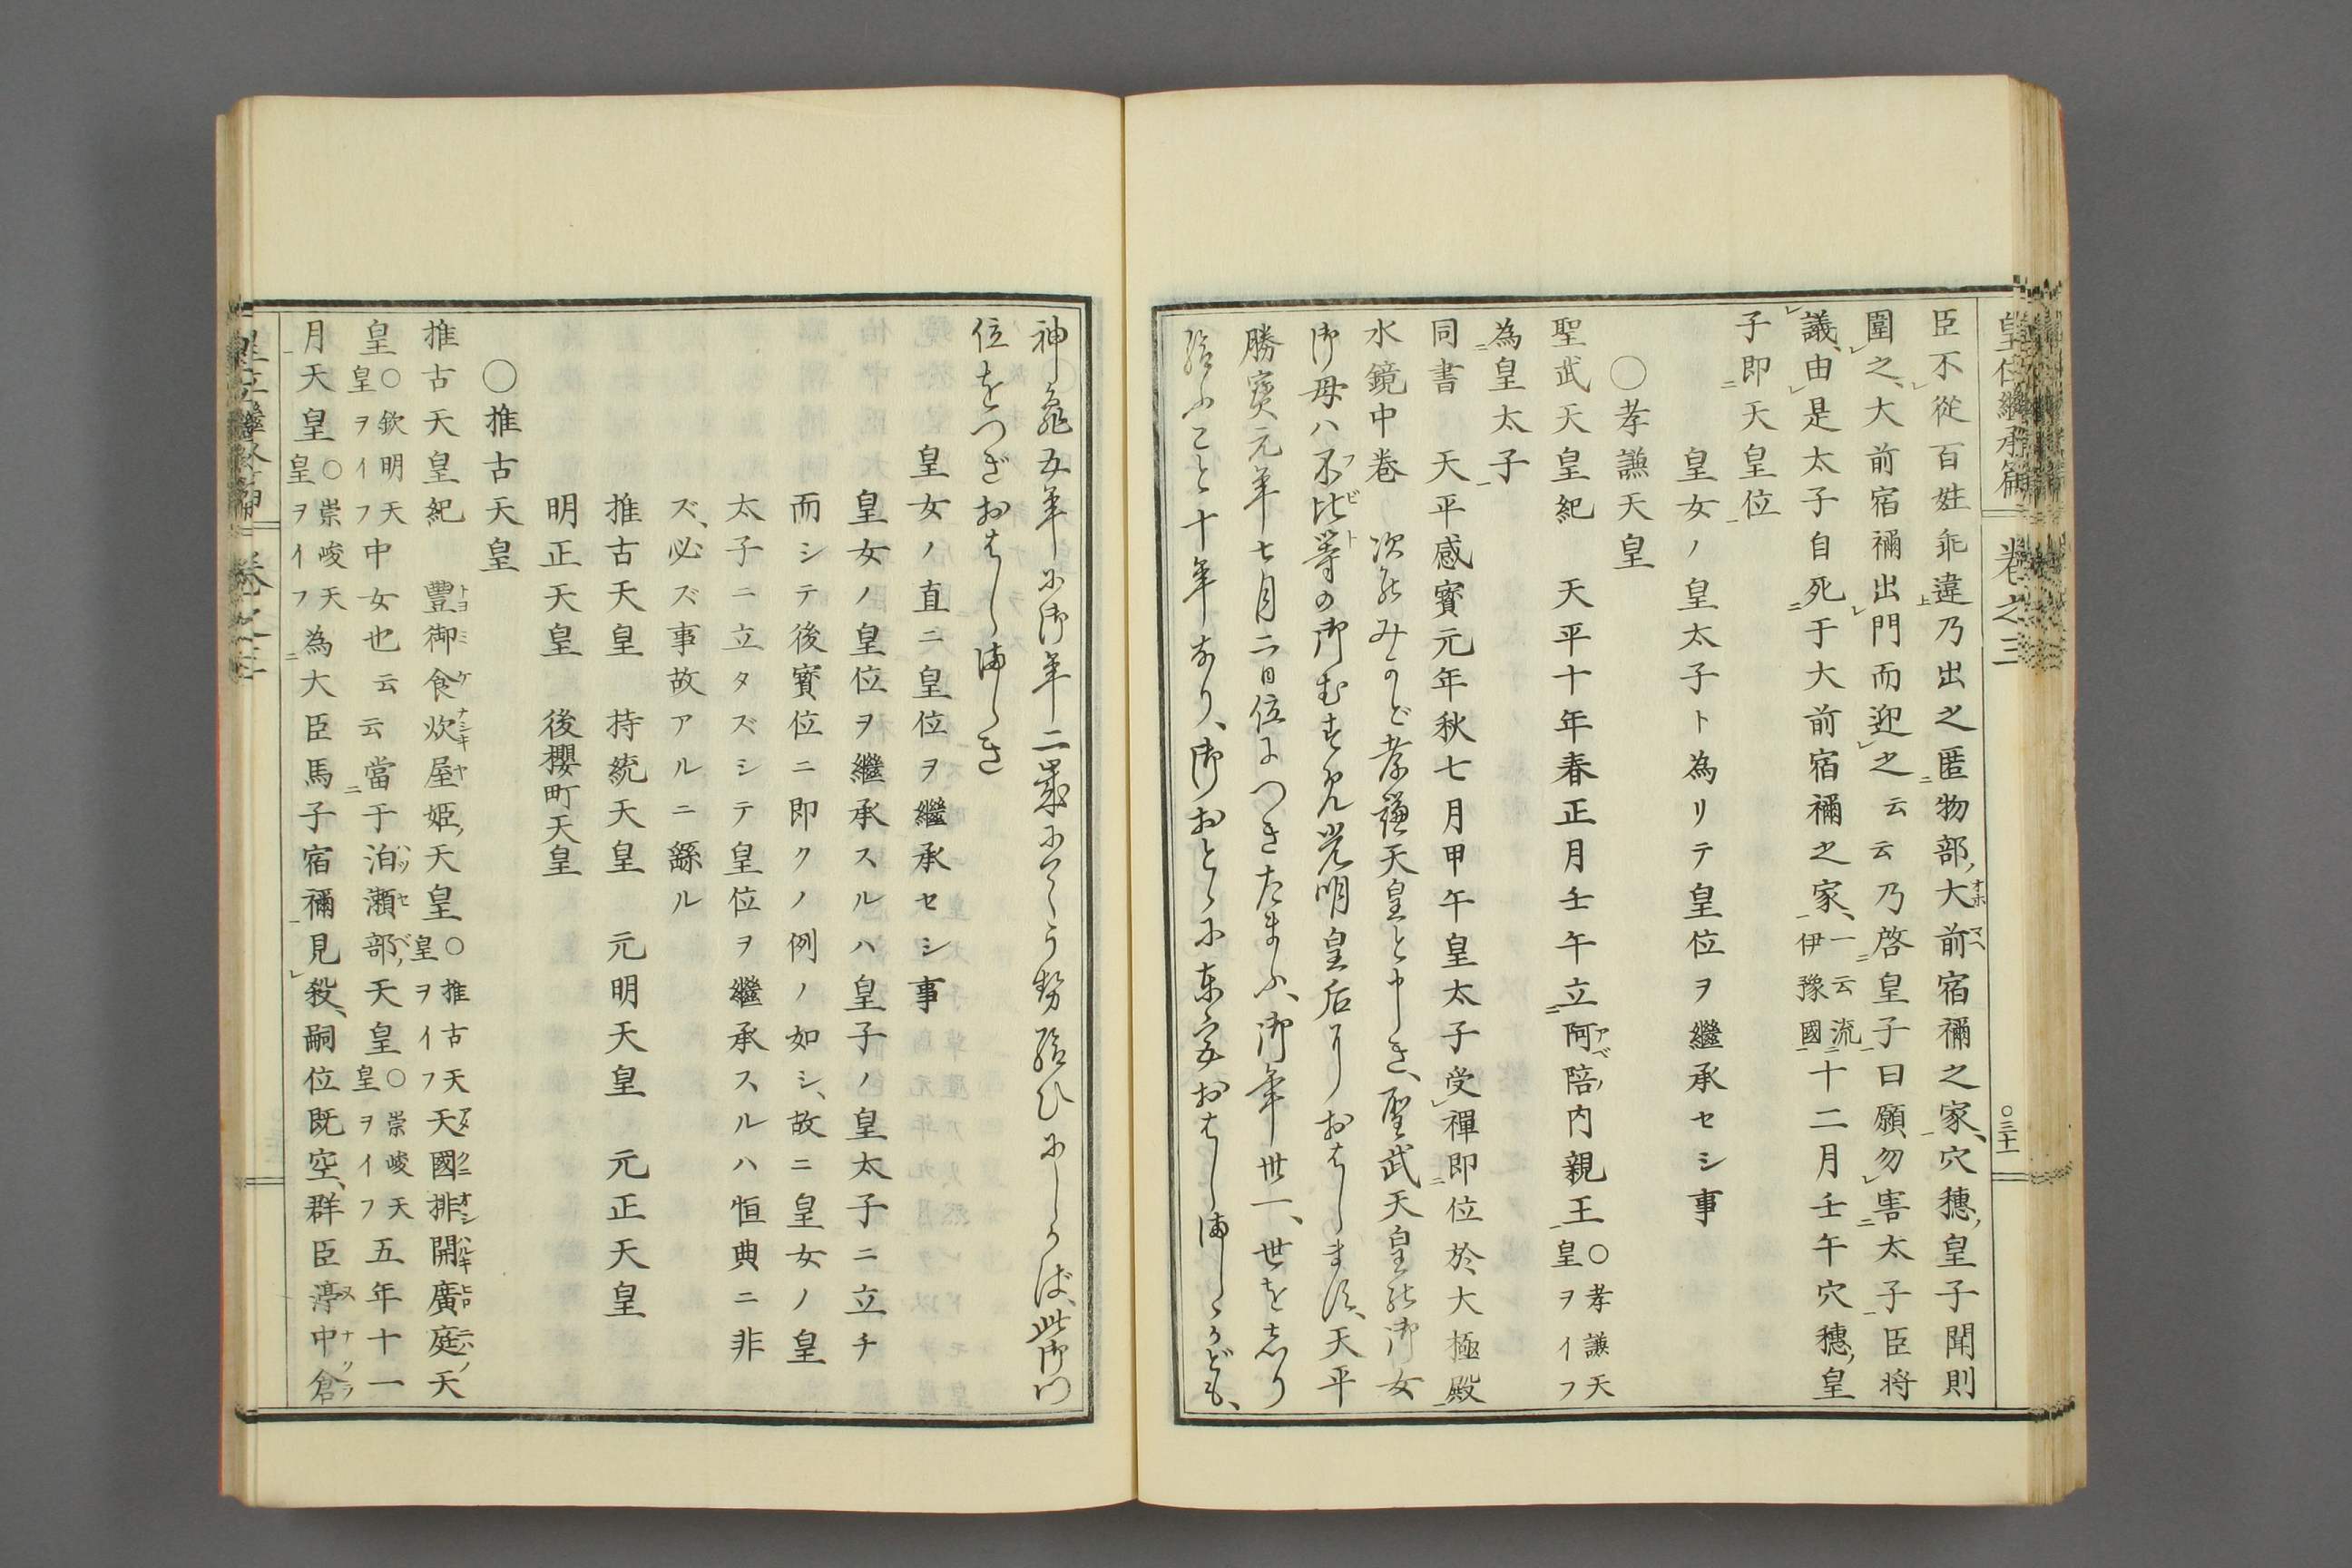 皇位繼承篇 卷之三 ○三十一
臣不從百姓乖違乃出之匿物部大前宿禰之家、穴穗皇子聞則
圍之、大前宿禰出門而迎之云云乃啓皇子曰願勿害太子臣将
議、由是太子自死于大前宿禰之家、一云流伊豫國十二月壬午穴穗皇
子即天皇位
皇女ノ皇太子ト為リテ皇位ヲ繼承セシ事
○孝謙天皇
聖武天皇紀 天平十年春正月壬午立阿陪内親王○孝謙天皇ヲイフ
為皇太子
同書 天平感寳元年秋七月甲午皇太子受禪即位於大極殿
水鏡中卷 次能みかど孝謙天皇と申しき、聖武天皇能御女
御母ハ不比等の御むすめ光明皇后におはします、天平
勝寳元年七月二日位につきたまふ、御年卅一、世をしり
給ふこと十年なり、御おとゝに東宮おはしましゝかども、
神龜五年に御年二歳にてうせ給ひにしかば、此御門
位をつぎおはしましき
皇女ノ直ニ皇位ヲ繼承セシ事
皇女ノ皇位ヲ繼承スルハ皇子ノ皇太子ニ立チ
而シテ後寳位ニ即クノ例ノ如シ、故ニ皇女ノ皇
太子ニ立タズシテ皇位ヲ繼承スルハ恒典ニ非
ズ、必ズ事故アルニ繇ル
推古天皇 持統天皇 元明天皇 元正天皇
明正天皇 後櫻町天皇
○推古天皇
推古天皇紀 豐御食炊屋姫天皇○推古天皇ヲイフ天國排開廣庭天
皇○欽明天皇ヲイフ中女也云云當于泊瀬部天皇○崇峻天皇ヲイフ五年十一
月天皇○崇峻天皇ヲイフ為大臣馬子宿禰見殺、嗣位既空、群臣渟中倉
皇位繼承篇 卷之三